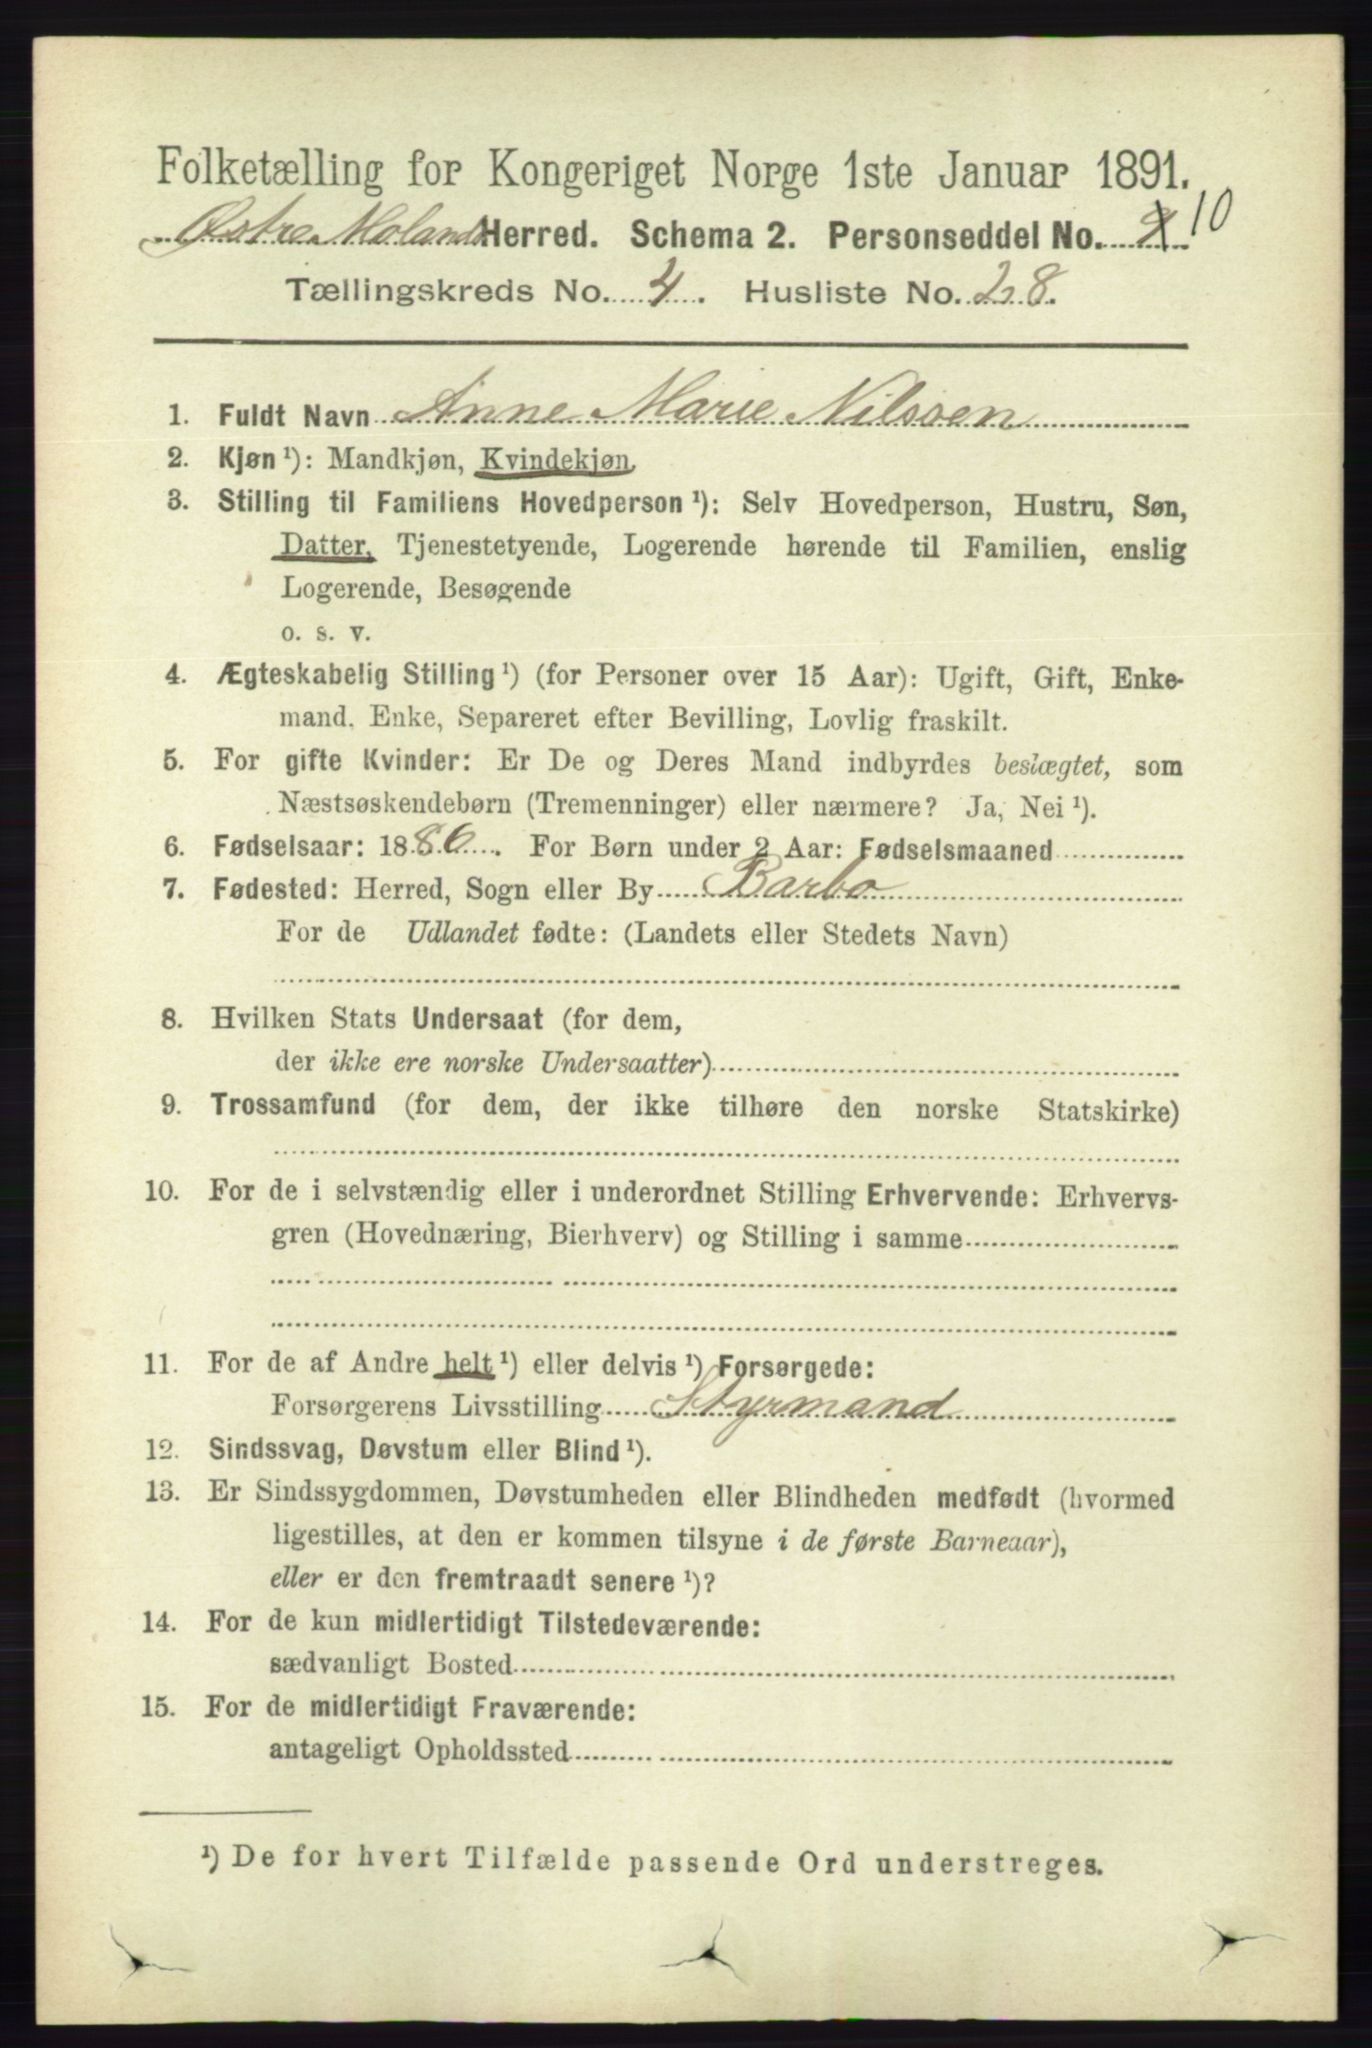 Folketælling for Kongeriget Norge 1ste Januar 1891.
Østre Molands Herred. Schema 2. Personseddel No. 9 10
Tællingskreds No. 4. Husliste No. 28.
1. Fuldt Navn Anne Marie Nilssen
2. Kjøn ¹): Mandkjøn, Kvindekjøn
3. Stilling til Familiens Hovedperson ¹): Selv Hovedperson, Hustru, Søn,
Datter, Tjenestetyende, Logerende hørende til Familien, enslig
Logerende, Besøgende
o. s. v.
4. Ægteskabelig Stilling ¹) (for Personer over 15 Aar): Ugift, Gift, Enke-
mand, Enke, Separeret efter Bevilling, Lovlig fraskilt.
5. For gifte Kvinder: Er De og Deres Mand indbyrdes beslægtet, som
Næstsøskendebørn (Tremenninger) eller nærmere? Ja, Nei ¹).
6. Fødselsaar: 1886. For Børn under 2 Aar: Fødselsmaaned
7. Fødested: Herred, Sogn eller By Barbo
For de Udlandet fødte: (Landets eller Stedets Navn)
8. Hvilken Stats Undersaat (for dem,
der ikke ere norske Undersaatter)
9. Trossamfund (for dem, der ikke tilhøre den norske Statskirke)
10. For de i selvstændig eller i underordnet Stilling Erhvervende: Erhvervs-
gren (Hovednæring, Bierhverv) og Stilling i samme
11. For de af Andre helt ¹) eller delvis ¹) Forsørgede:
Forsørgerens Livsstilling Styrmand
12. Sindssvag, Døvstum eller Blind ¹).
13. Er Sindssygdommen, Døvstumheden eller Blindheden medfødt (hvormed
ligestilles, at den er kommen tilsyne i de første Barneaar),
eller er den fremtraadt senere ¹)?
14. For de kun midlertidigt Tilstedeværende:
sædvanligt Bosted
15. For de midlertidigt Fraværende:
antageligt Opholdssted
¹) De for hvert Tilfælde passende Ord understreges.